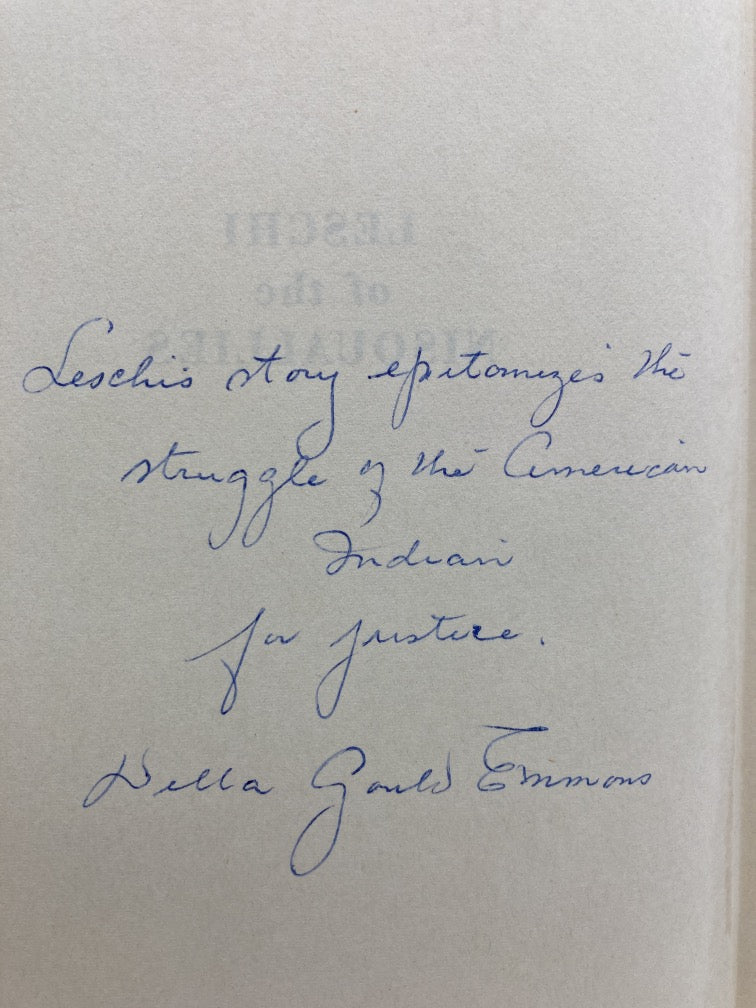 LESCHI
of the
NISQUALLIES
Leschi's story epitomizes the
struggle of the American
Indian
for justice.
Della Gould Emmons